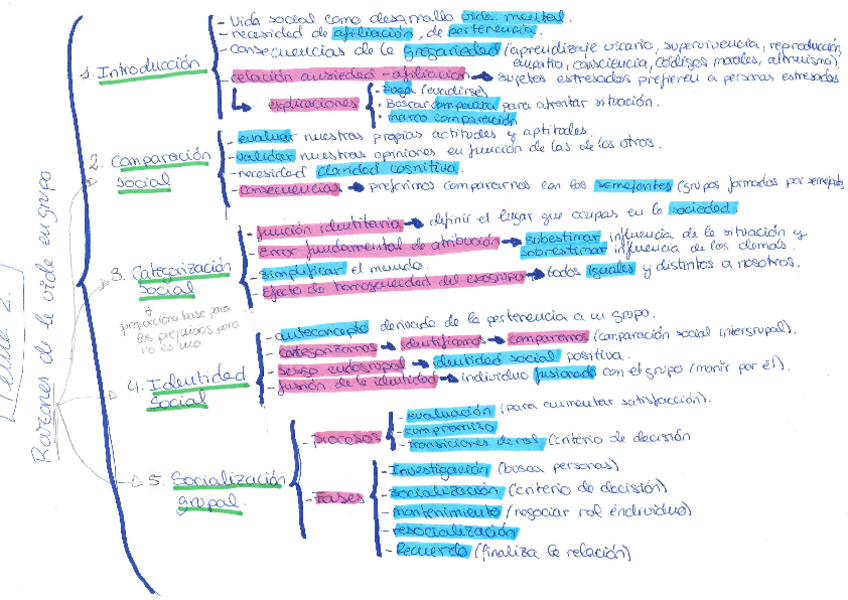 Tema 2.
Razones de la vida en grupo
1. Introducción
- Vida social como desarrollo vida mental.
- necesidad de afiliación, de pertenencia.
- consecuencias de la gregariedad (aprendizaje vicario, supervivencia, reproducción,
empatía, consciencia, códigos morales, altruismo).
- relación ansiedad-afiliación → sujetos estresados prefieren a personas estresadas
explicaciones
- Fuga (evadirse)
- Buscar compañía para afrontar situación.
- marco comparación
2. Comparación
social
- evaluar nuestras propias actitudes y aptitudes.
- validar nuestras opiniones en función de las de los otros.
- necesidad claridad cognitiva.
- consecuencias → preferimos compararnos con los semejantes (grupos formados por semejantes
3. Categorización
social
proporciona base para
los prejuicios pero
no es uno
- función identitaria → definir el lugar que ocupas en la sociedad.
- error fundamental de atribución → subestimar influencia de la situación y
sobrestimar influencia de los demás.
- simplificar el mundo.
- Efecto de homogeneidad del exogrupo → todos iguales y distintos a nosotros.
4. Identidad
social
- autoconcepto derivado de la pertenencia a un grupo.
- categorizamos → identificamos → comparamos (comparación social intergrupal).
- sesgo endogrupal → identidad social positiva.
- fusión de la identidad → individuo fusionado con el grupo (morir por él).
5. Socialización
grupal.
- procesos
- evaluación (para aumentar satisfacción).
- compromiso
- transiciones de rol (criterio de decisión
- Fases
- Investigación (busca personas)
- socialización (criterio de decisión)
- mantenimiento (negociar rol individuo)
- resocialización
- Recuerdo (finaliza la relación)